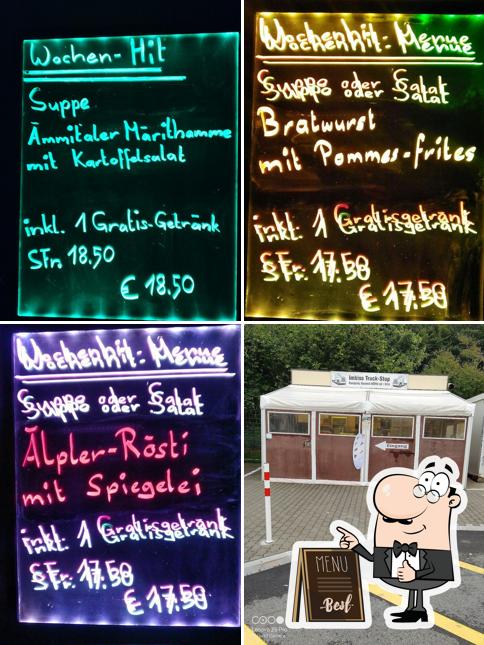 Wochen-Hit
Suppe
Ämmitaler Märithamme
mit Kartoffelsalat
inkl. 1 Gratis-Getränk
SFr. 18.50
€ 18.50
Wochenhit: Menue
Suppe oder Salat
Bratwurst
mit Pommes-frites
inkl. 1 Gratisgetränk
SFr. 17.50
€ 17.50
Wochenhit: Menue
Suppe oder Salat
Älpler-Rösti
mit Spiegelei
inkl. 1 Gratisgetränk
SFr. 17.50
€ 17.50
Imbiss Truck-Stop
Eingang
MENU
Best